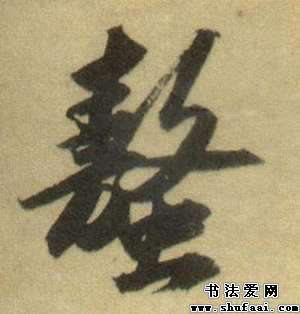 螯
书法爱网
www.shufaai.com